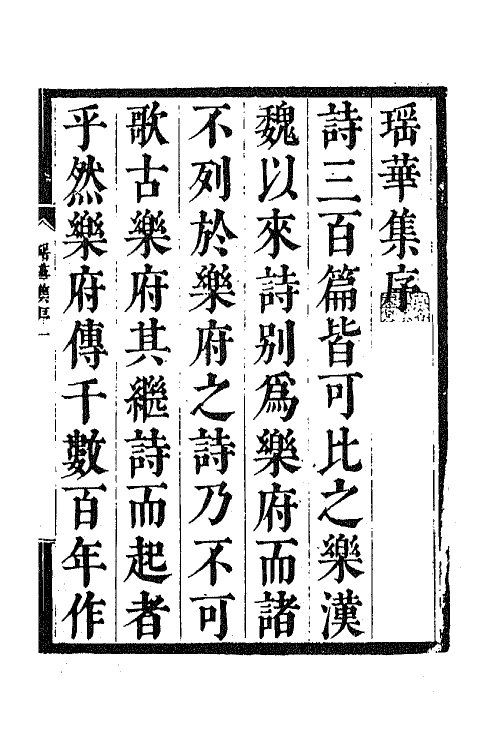 瑶華集序
詩三百篇皆可比之樂漢
魏以來詩别爲樂府而諸
不列於樂府之詩乃不可
歌古樂府其繼詩而起者
乎然樂府傳千數百年作
瑶華集序一